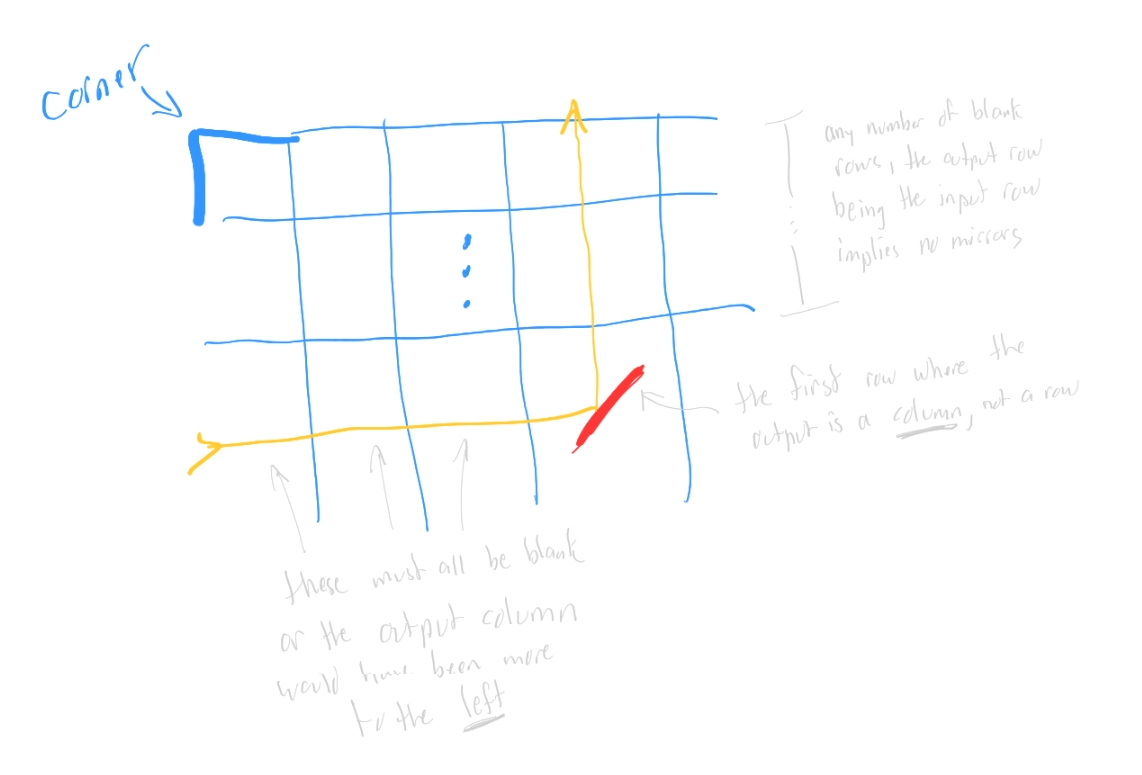 Corner
any number of blank
rows, the output row
being the input row
implies no mirrors
the first row where the
output is a column, not a row
these must all be blank
or the output column
would have been more
to the left